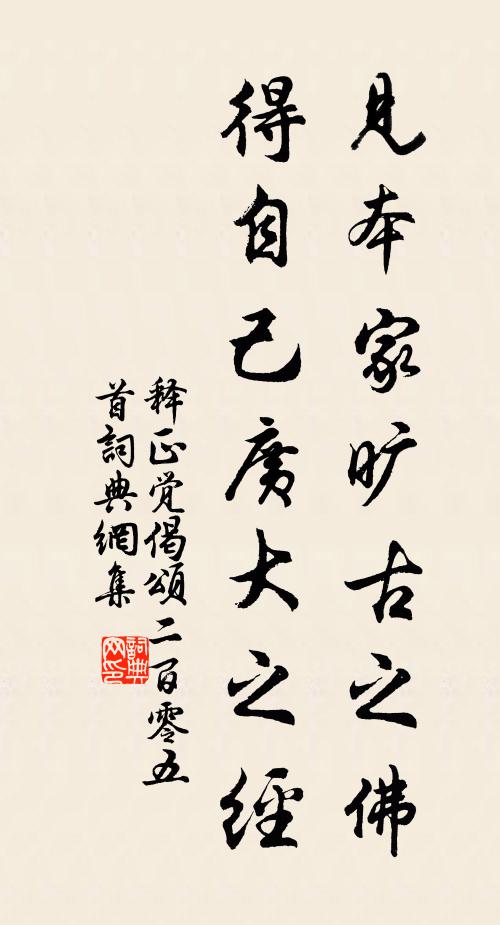 見本家旷古之佛
得自己廣大之經
释正觉偈頌二百零五
首詞典網集
詞典
网印